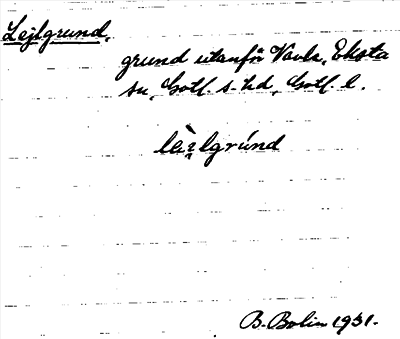 Lejlgrund,
grund utanför Vavle, Eksta
sn, Gotl. s. hd, Gotl. l.
lài̯lgrúnd
B. Bolin 1931.